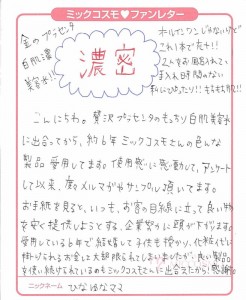 ミックコスモ♥ファンレター
金のプラセンタ
白肌濃
美容水!!
濃密
オールインワンじゃないけど
これ1本で充分!!
2人子育てに追われてお手
入れ時間のない
私にぴったり!!
こんにちわ。贅沢プラセンタのもっちり白肌美容水
に出会ってから、約6年ミックコスモさんの色んな
製品愛用してます。使用感に感動して、アンケート
して以来、度々メルマガやサンプル頂いてます。
お手紙を見ると、いつも、お客の目線に立って良い物
を安く提供しようとする、企業努力に頭が下がります。
愛用している6年で結婚して子供も授かり、化粧品に
掛けられるお金は大部限られてしまいましたが、良い製品
を使い続けられているのもミックコスモさんに出会えたから!感謝。
ニックネーム ひなゆなママ